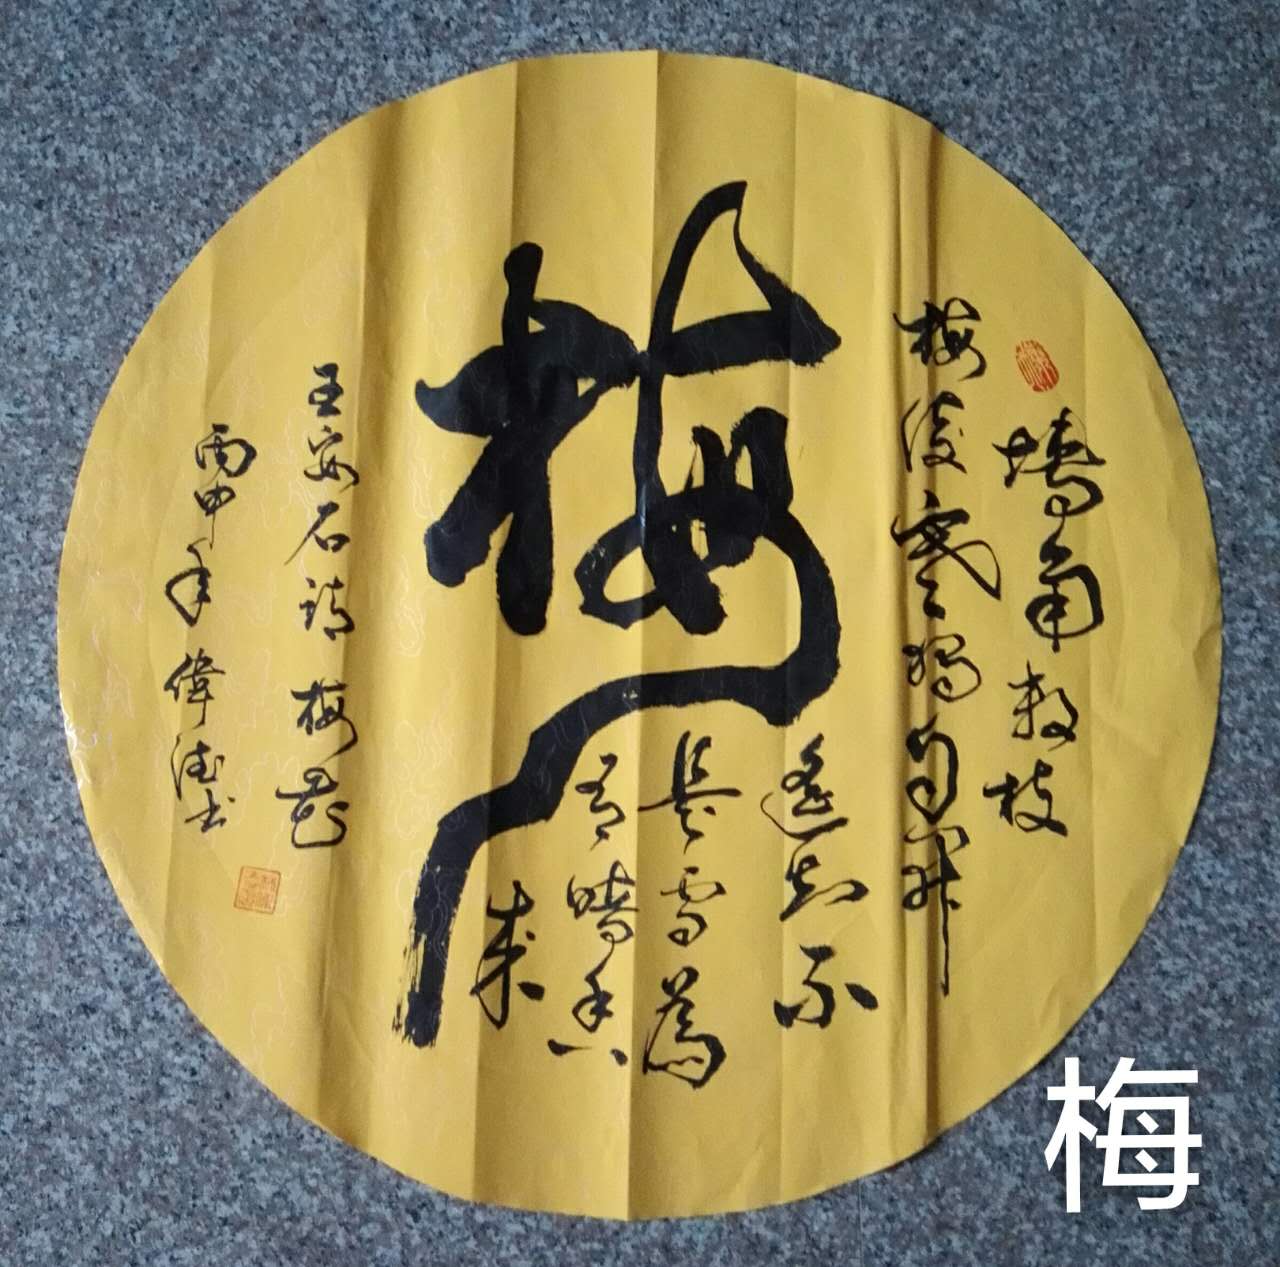 墙角数枝
梅凌寒獨自開
梅
遥知不
是雪為
有暗香
来
王安石詩梅花
丙申年偉书
梅